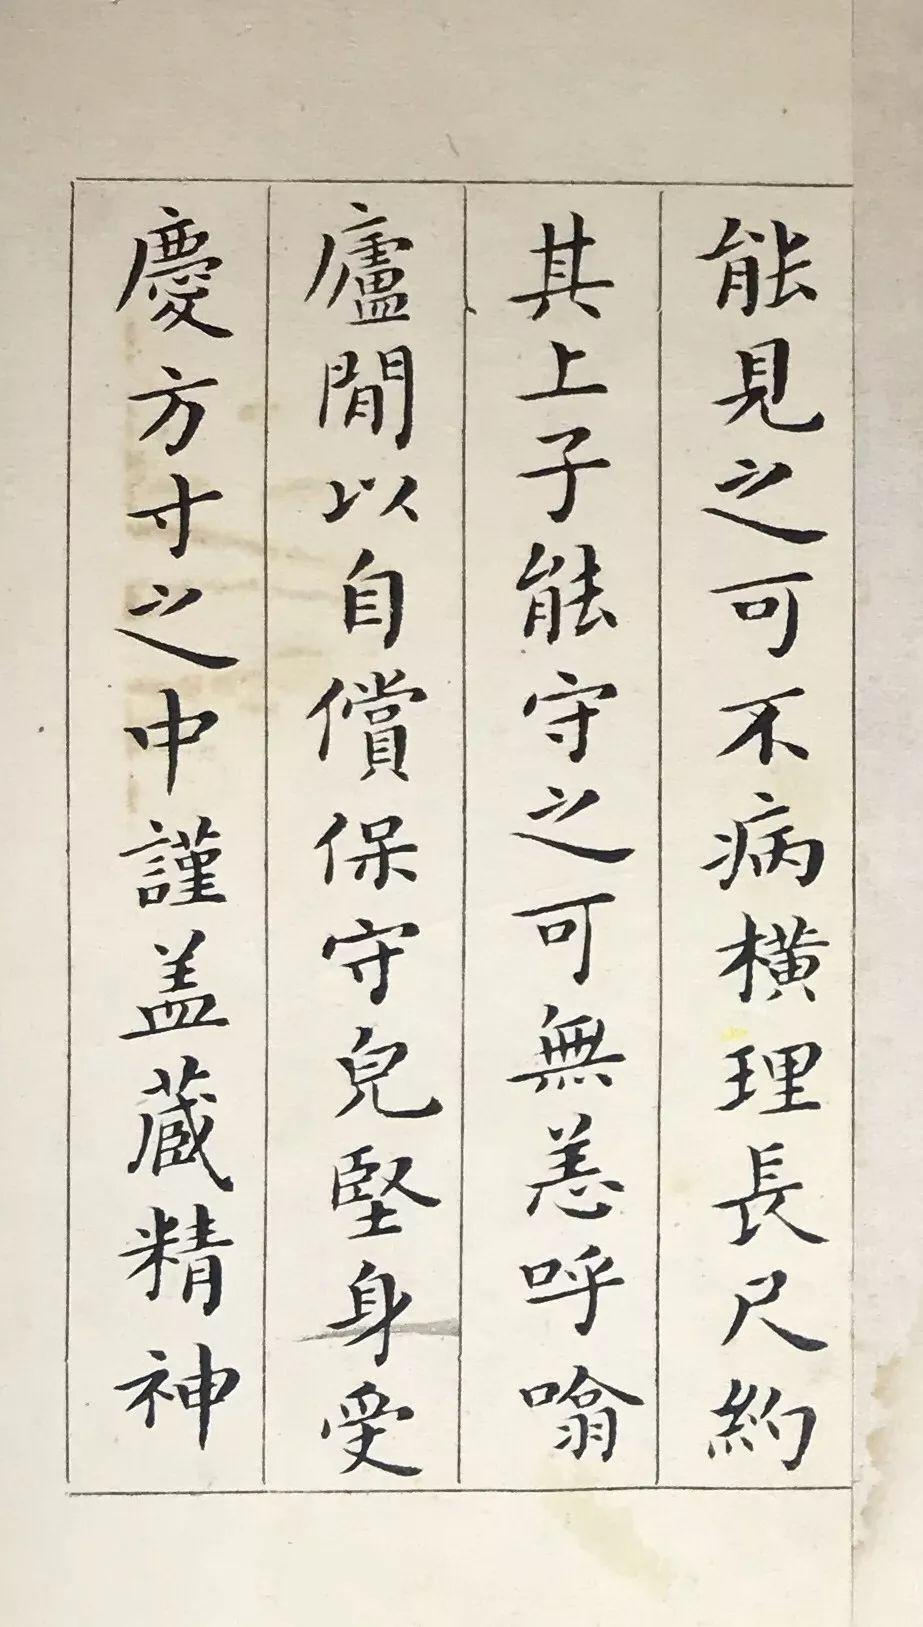 能見之可不病橫理長尺約
其上子能守之可無恙呼噏
廬間以自償保守皃堅身受
慶方寸之中謹盖蔵精神